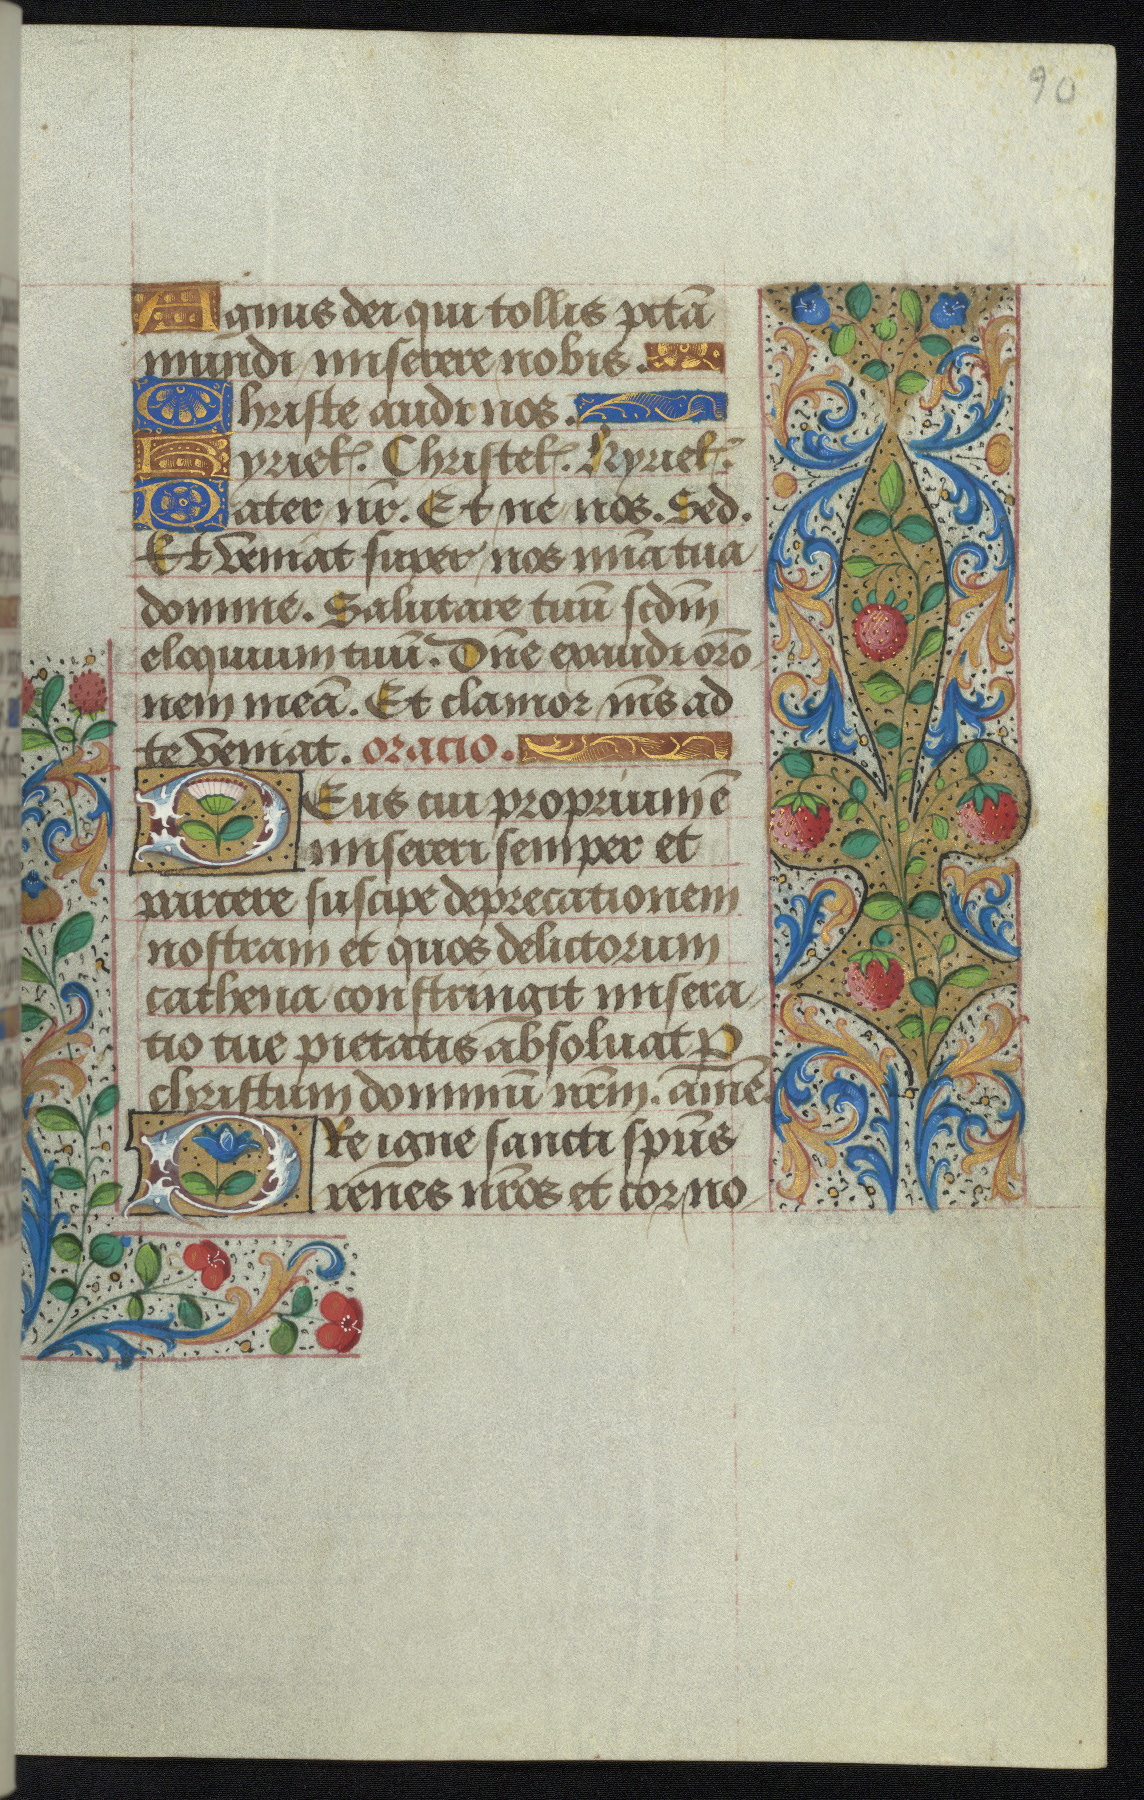 90
Agnus dei qui tollis pctã
mundi miserere nobis.
Christe audi nos.
Kyriel. Christel. Kyriel.
Pater nr̃. Et ne nos. Sed.
Et veniat super nos mĩa tua
domine. Salutare tuũ scdm̃
eloquium tuũ. Dñe exaudi orõ
nem meã. Et clamor m̃s ad
te veniat. oracio.
DEus cui proprium ẽ
misereri semper et
parcere suscipe deprecationem
nostram et quos delictorum
cathena constringit misera
tio tue pietatis absoluat ꝑ
christum dominũ nr̃m. amẽ.
URe igne sancti sp̃us
renes nr̃os et cor no